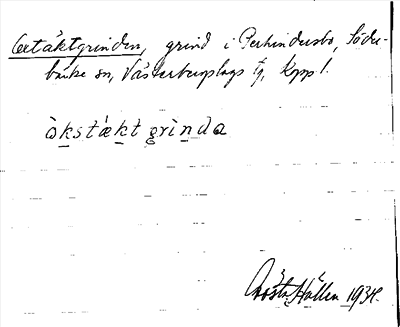 Oxtäktgrinden, grind i Perhindersbo, Söder-
bärke sn, Västerbergslags fg, Kppl.
òkstækt grinda
Gösta Hallen 1934.